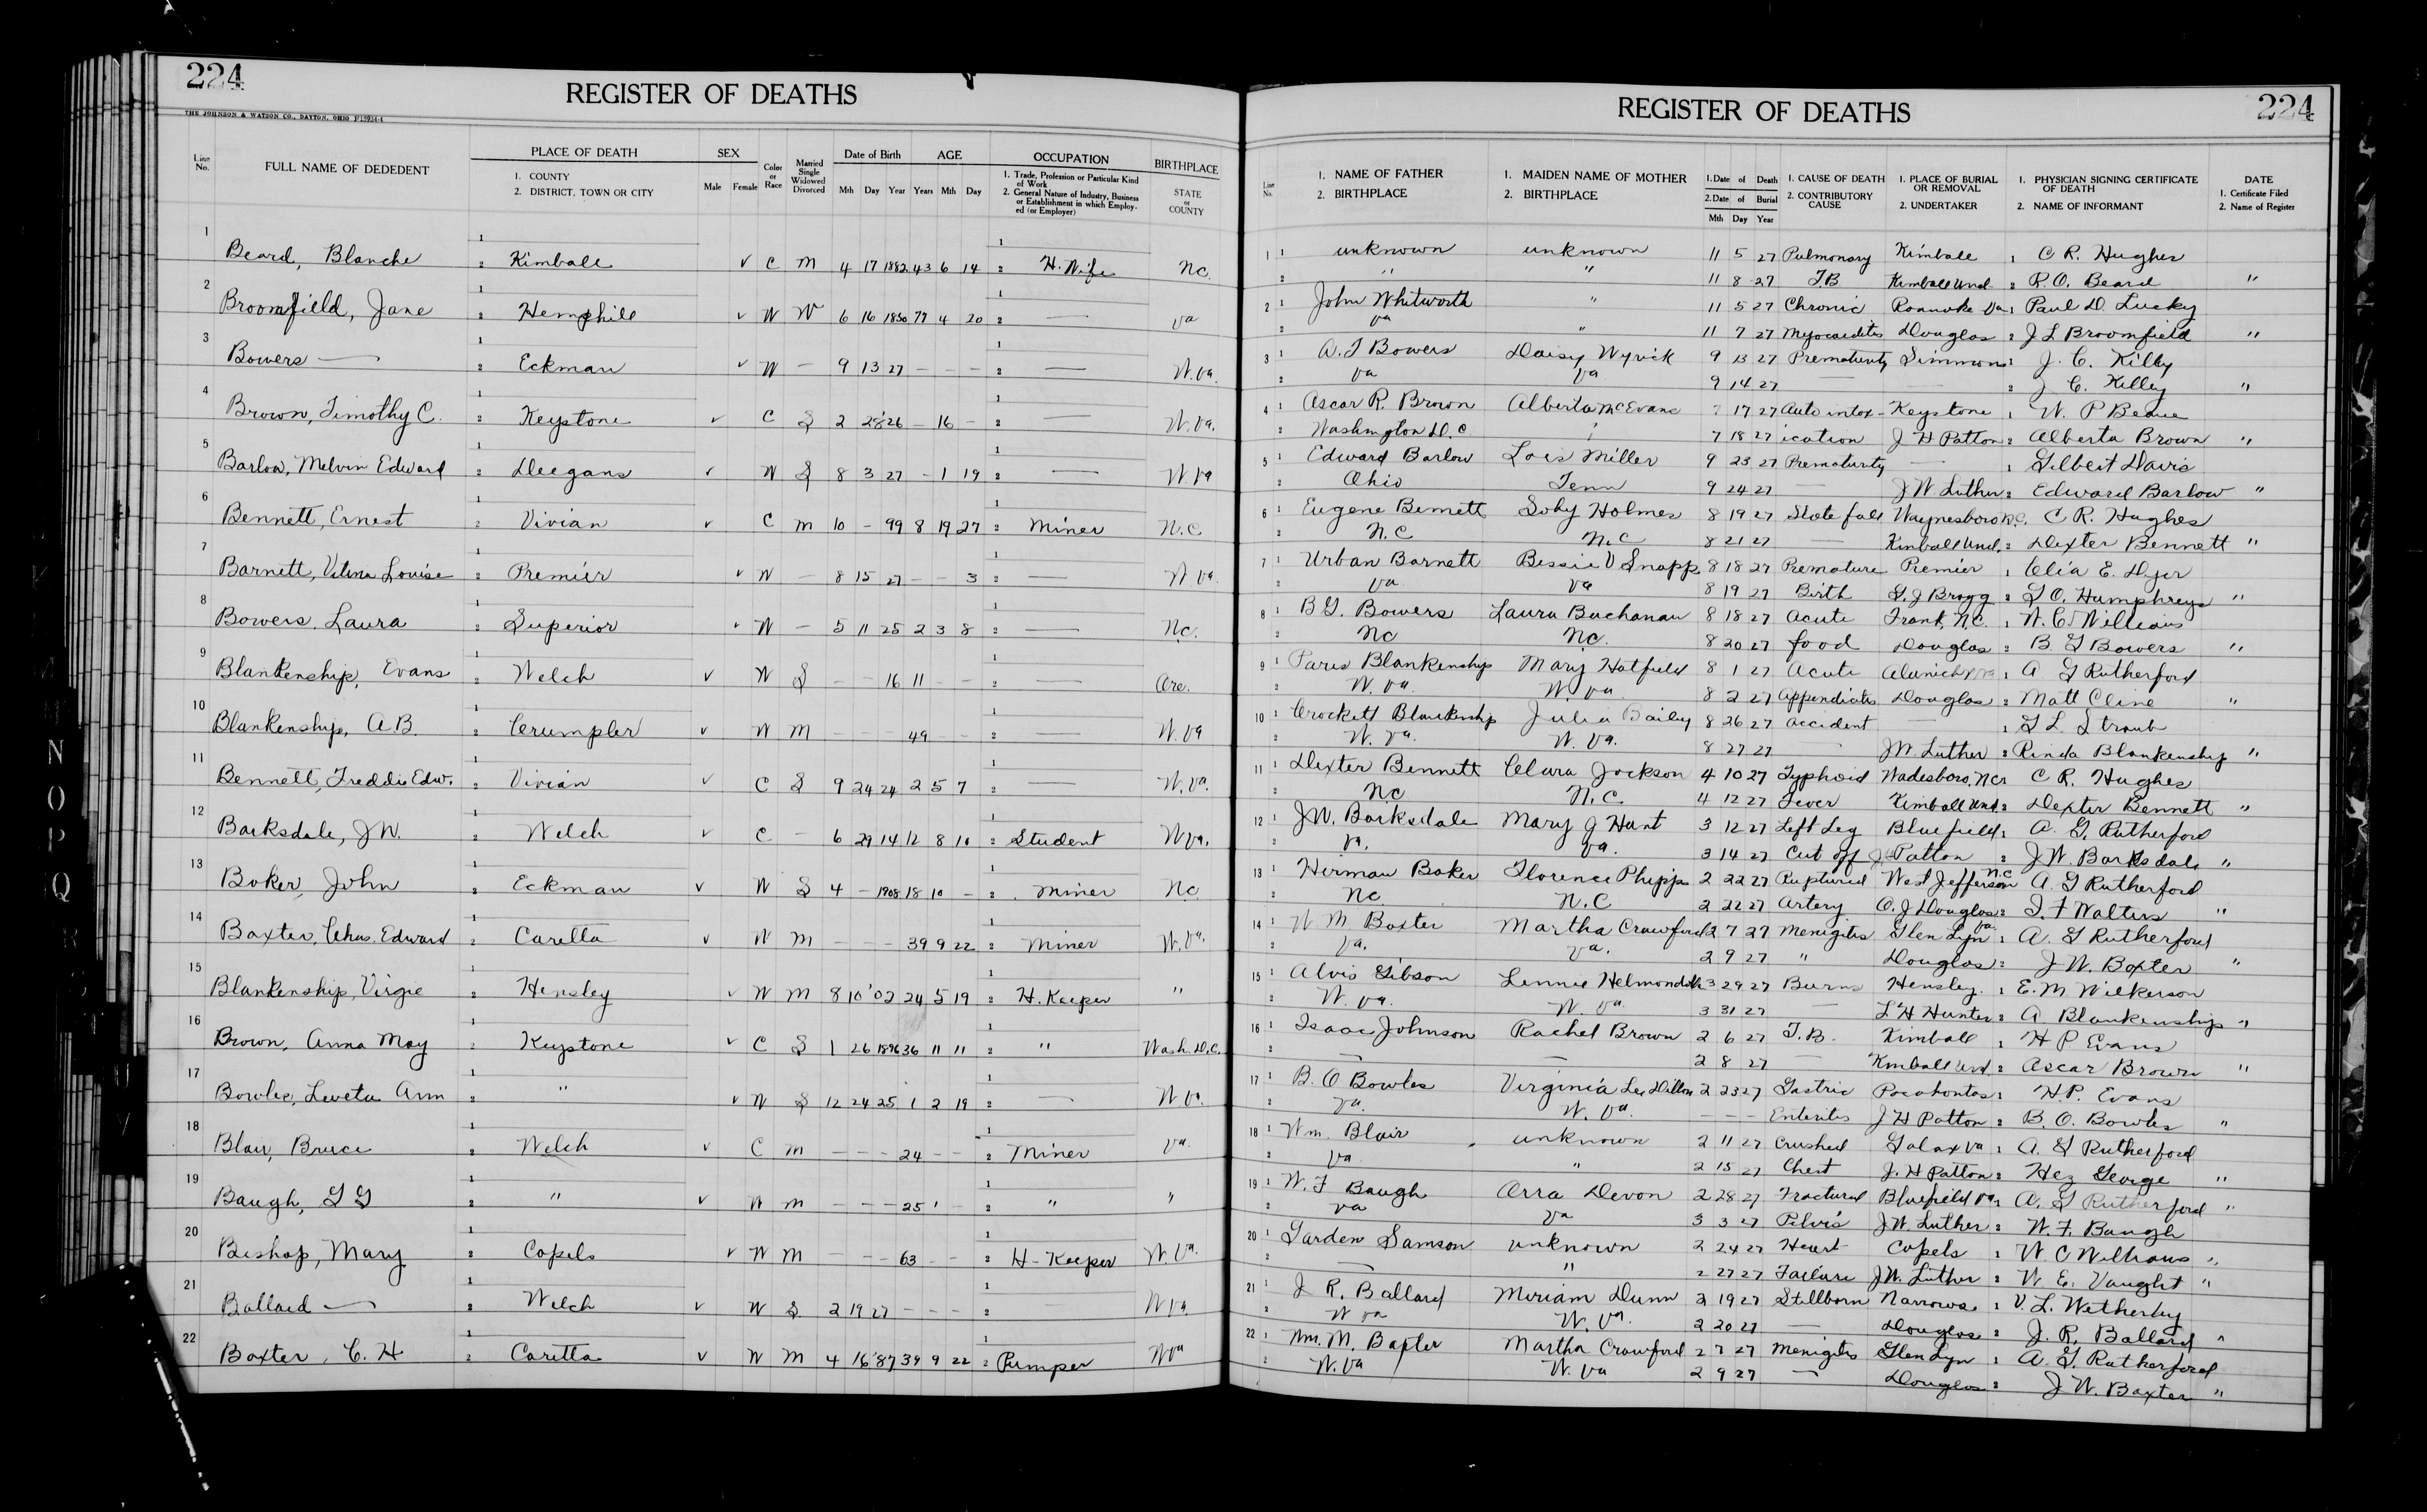 224
REGISTER OF DEATHS
THE JOHNSON & WATSON CO., DAYTON, OHIO
Line No. FULL NAME OF DEDEDENT PLACE OF DEATH 1. COUNTY 2. DISTRICT, TOWN OR CITY SEX Male Female Color or Race Married Single Widowed Divorced Date of Birth Mth Day Year AGE Years Mth Day OCCUPATION 1. Trade, Profession or Particular Kind of Work 2. General Nature of Industry, Business or Establishment in which Employed (or Employer) BIRTHPLACE STATE or COUNTY
1 Beard, Blanche Kimball v C M 4 17 1882 43 6 14 H. Wife N.C.
2 Broomfield, Jane Hemphill v W W 6 16 1850 77 4 20 — Va
3 Bowers — Eckman v W — 9 13 27 — — — — W.Va.
4 Brown, Timothy C. Keystone v C S 2 28 26 — 16 — — W.Va.
5 Barlow, Melvin Edward Deegans v W S 8 3 27 — 1 19 — W Va
6 Bennett, Ernest Vivian v C M 10 — 99 8 19 27 Miner N.C.
7 Barnett, Velma Louise Premier v W — 8 15 27 — — 3 — W Va.
8 Bowers, Laura Superior v W — 5 11 25 2 3 8 — N.C.
9 Blankenship, Evans Welch v W S — — 16 11 — — — Ore.
10 Blankenship, A.B. Crumpler v W M — — — 49 — — — W Va
11 Bennett, Freddie Edw. Vivian v C S 9 24 24 2 5 7 — W.Va.
12 Barksdale, J.W. Welch v C — 6 29 14 12 8 10 Student W Va.
13 Baker, John Eckman v W S 4 — 1908 18 10 — Miner N.C.
14 Baxter, Chas. Edward Caretta v W M — — — 39 9 22 Miner W.Va.
15 Blankenship, Virgie Hensley v W M 8 10 '02 24 5 19 H. Keeper "
16 Brown, Anna May Keystone v C S 1 26 1896 36 11 11 " Wash. D.C.
17 Bowles, Leveta Ann " v W S 12 24 25 1 2 19 — W Va.
18 Blair, Bruce Welch v C M — — — 24 — — Miner Va.
19 Baugh, G G " v W M — — — 25 1 — " "
20 Bishop, Mary Copels v W M — — — 63 — — H-Keeper W.Va.
21 Ballard — Welch v W S. 2 19 27 — — — — W Va.
22 Baxter, C. H Caretta v W M 4 16 '87 39 9 22 Pumper W Va
224
REGISTER OF DEATHS
Line No. 1. NAME OF FATHER 2. BIRTHPLACE 1. MAIDEN NAME OF MOTHER 2. BIRTHPLACE 1. Date of Death 2. Date of Burial Mth Day Year 1. CAUSE OF DEATH 2. CONTRIBUTORY CAUSE 1. PLACE OF BURIAL OR REMOVAL 2. UNDERTAKER 1. PHYSICIAN SIGNING CERTIFICATE OF DEATH 2. NAME OF INFORMANT DATE 1. Certificate Filed 2. Name of Register
1 unknown unknown 11 5 27 Pulmonary Kimball C R. Hughes
" " 11 8 27 T.B Kimball Und. R.O. Beard "
2 John Whitworth " 11 5 27 Chronic Roanoke Va Paul D. Lucky
Va " 11 7 27 Myocarditis Douglas J L Broomfield "
3 A. T Bowers Daisy Wyrick 9 13 27 Prematurity Simmons J. C. Killey
Va Va 9 14 27 — — J C. Killey "
4 Ascar R. Brown Alberta McEvans 7 17 27 Auto intox- Keystone W. P
Washington D.C. 7 18 27 ication J H Patton Alberta Brown "
5 Edward Barlow Lois Miller 9 23 27 Prematurity — Gilbert Davis
Ohio Tenn 9 24 27 — J W. Luther Edward Barlow "
6 Eugene Bennett Soby Holmes 8 19 27 Slate fall Waynesboro N.C. C R. Hughes
N.C N.C 8 21 27 — Kimball Und. Dexter Bennett "
7 Urban Barnett Bessie V Snapp 8 18 27 Premature Premier Elia E. Dyer
Va Va 8 19 27 Birth G. J Bragg G O. Humphreys "
8 B G. Bowers Laura Buchanan 8 18 27 Acute Frank, N.C. W. C. Williams
NC N.C. 8 20 27 food Douglas B. G Bowers "
9 Paris Blankenship Mary Hatfield 8 1 27 Acute A G Rutherford
W. Va. W. Va 8 2 27 Appendicitis Douglas Matt Cline "
10 Crockett Blankenship Julia Bailey 8 26 27 Accident — G L. Straub
W. Va. W. Va. 8 27 27 — J.W. Luther Rinda Blankenship "
11 Dexter Bennett Clara Jackson 4 10 27 Typhoid Wadesboro, N.C. C R. Hughes
N.C N.C. 4 12 27 Fever Kimball Und. Dexter Bennett "
12 J.W. Barksdale Mary J Hunt 3 12 27 Left Leg Bluefield A. G. Rutherford
Va. Va. 3 14 27 Cut off J H Patton J W. Barksdale "
13 Herman Baker Florence Phipps 2 22 27 Ruptured West Jefferson N.C A. G Rutherford
NC N.C 2 22 27 Artery O. J Douglas I. F Walters "
14 W M. Baxter Martha Crawford 2 7 27 Menigitis Glen Lyn Va. A. G Rutherford
Va. Va. 2 9 27 " Douglas J. W. Baxter "
15 Alvis Gibson Lennie 3 29 27 Burns Hensley E.M Wilkerson
W. Va. W. Va 3 31 27 — L H Hunter A Blankenship "
16 Isaac Johnson Rachel Brown 2 6 27 T.B. Kimball H P Evans
— — 2 8 27 — Kimball Und. Ascar Brown "
17 B. O Bowles Virginia Lee Dillon 2 23 27 Gastric Pocahontas H.P. Evans
Va. W. Va. — — — Enteritis J H Patton B. O. Bowles "
18 Wm. Blair unknown 2 11 27 Crushed Galax Va A. G Rutherford
Va " 2 15 27 Chest J. H Patton Hez George "
19 W. F Baugh Arra Devon 2 28 27 Fractured Bluefield Va A. G Rutherford "
Va Va 3 3 27 Pelvis J W. Luther W. F. Baugh
20 Garden Samson unknown 2 24 27 Heart Copels W. C Williams "
— " 2 27 27 Failure J W. Luther W. E. Vaught "
21 J R. Ballard Miriam Dunn 2 19 27 Stillborn Narrows V. L. Wetherby
W Va W. Va. 2 20 27 — Douglas J. R. Ballard "
22 Wm. M. Baxter Martha Crawford 2 7 27 Menigitis Glen Lyn A. G. Rutherford
W. Va W. Va 2 9 27 — Douglas J W. Baxter "
N
O
P
Q